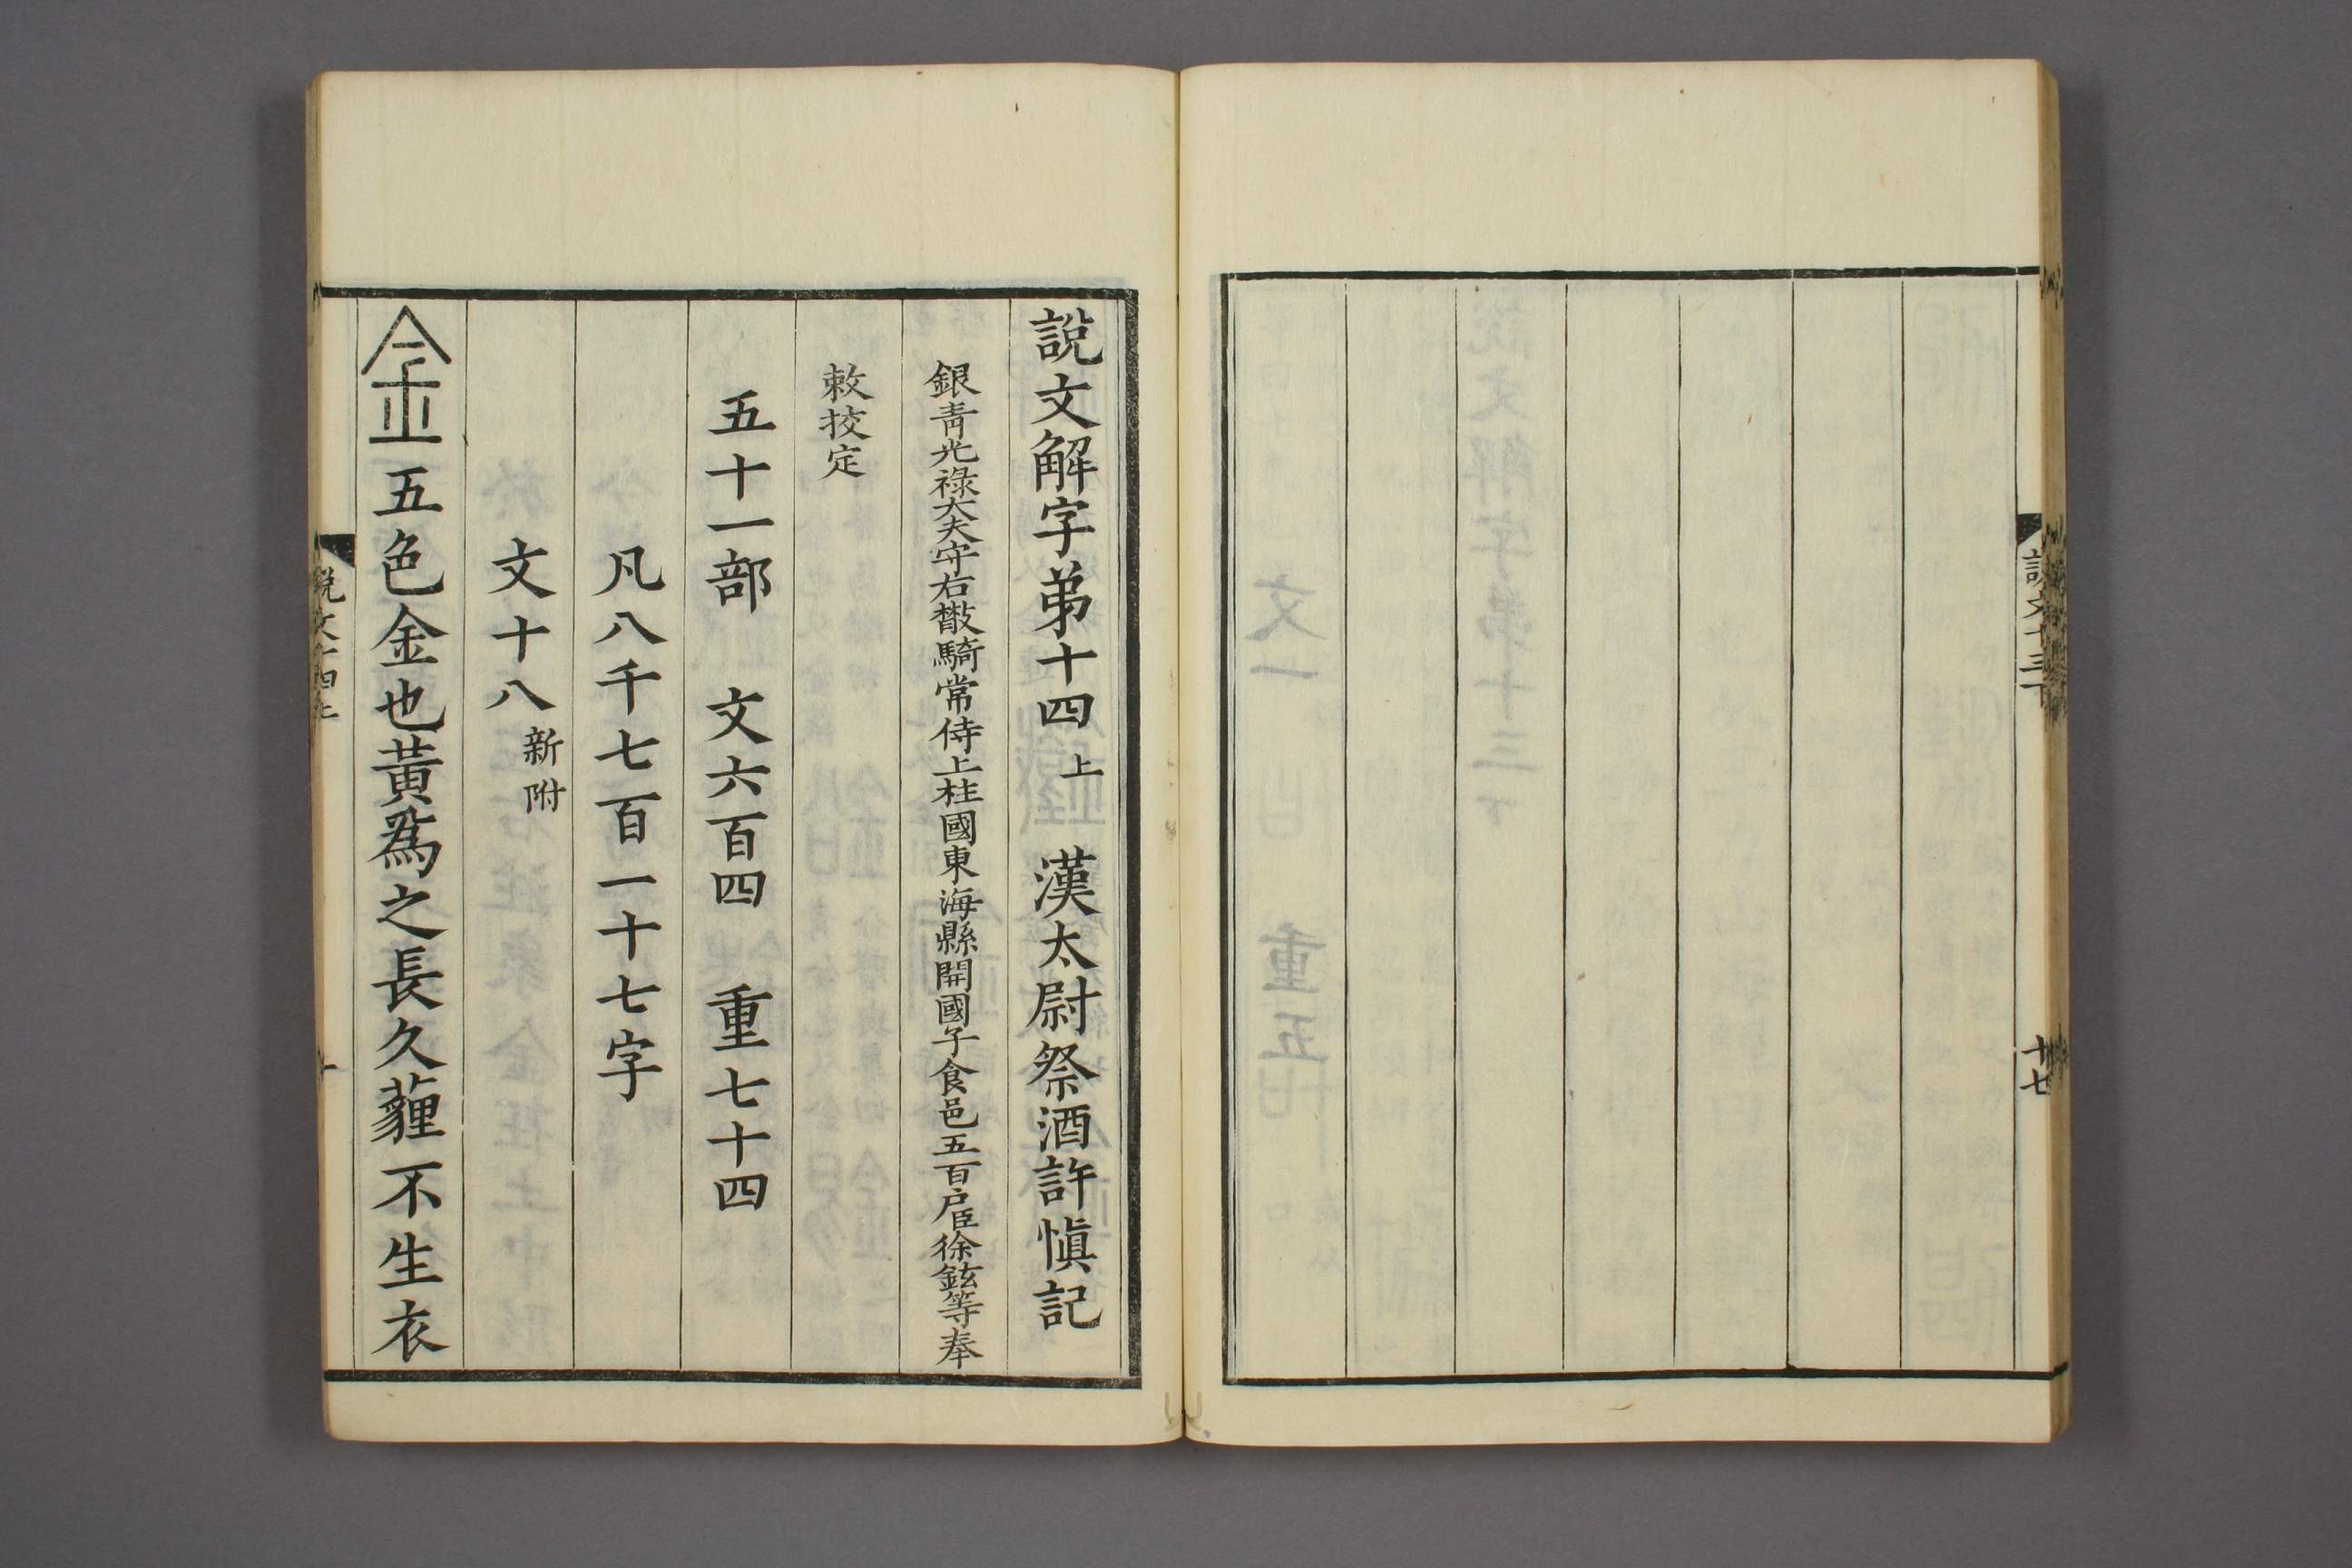 說文十三下
十七
說文解字弟十四上 漢太尉祭酒許愼記
銀青光祿大夫守右散騎常侍上柱國東海縣開國子食邑五百戶臣徐鉉等奉
敕挍定
五十一部 文六百四 重七十四
凡八千七百一十七字
文十八新附
金五色金也黃爲之長久薶不生衣
說文十四上
一